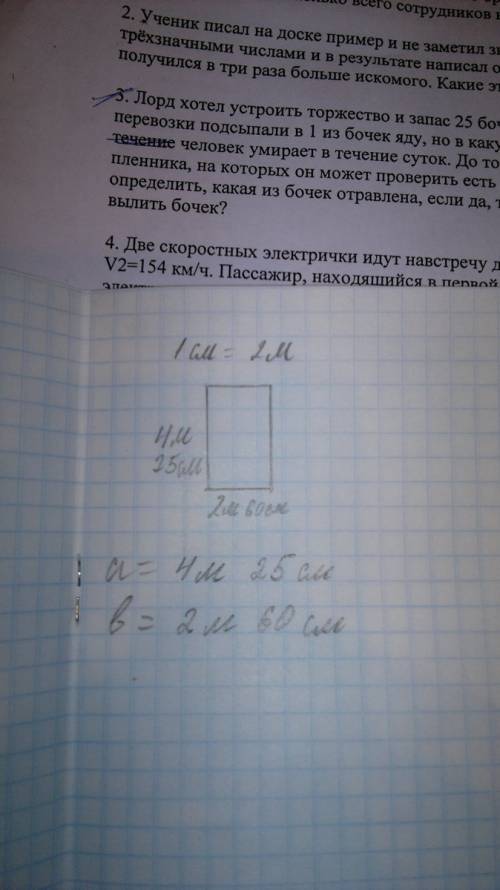 всего сотрудников
2. Ученик писал на доске пример и не заметил
трёхзначными числами и в результате написал
получился в три раза больше искомого. Какие
3. Лорд хотел устроить торжество и запас 25
перевозки подсыпали в 1 из бочек яду, но в
течение человек умирает в течение суток. До
пленника, на которых он может проверить есть
определить, какая из бочек отравлена, если да,
вылить бочек?
4. Две скоростных электрички идут навстречу
V2=154 км/ч. Пассажир, находящийся в первой
1 см = 2 м
4м
25см
2м 60см
a = 4 м 25 см
b = 2 м 60 см